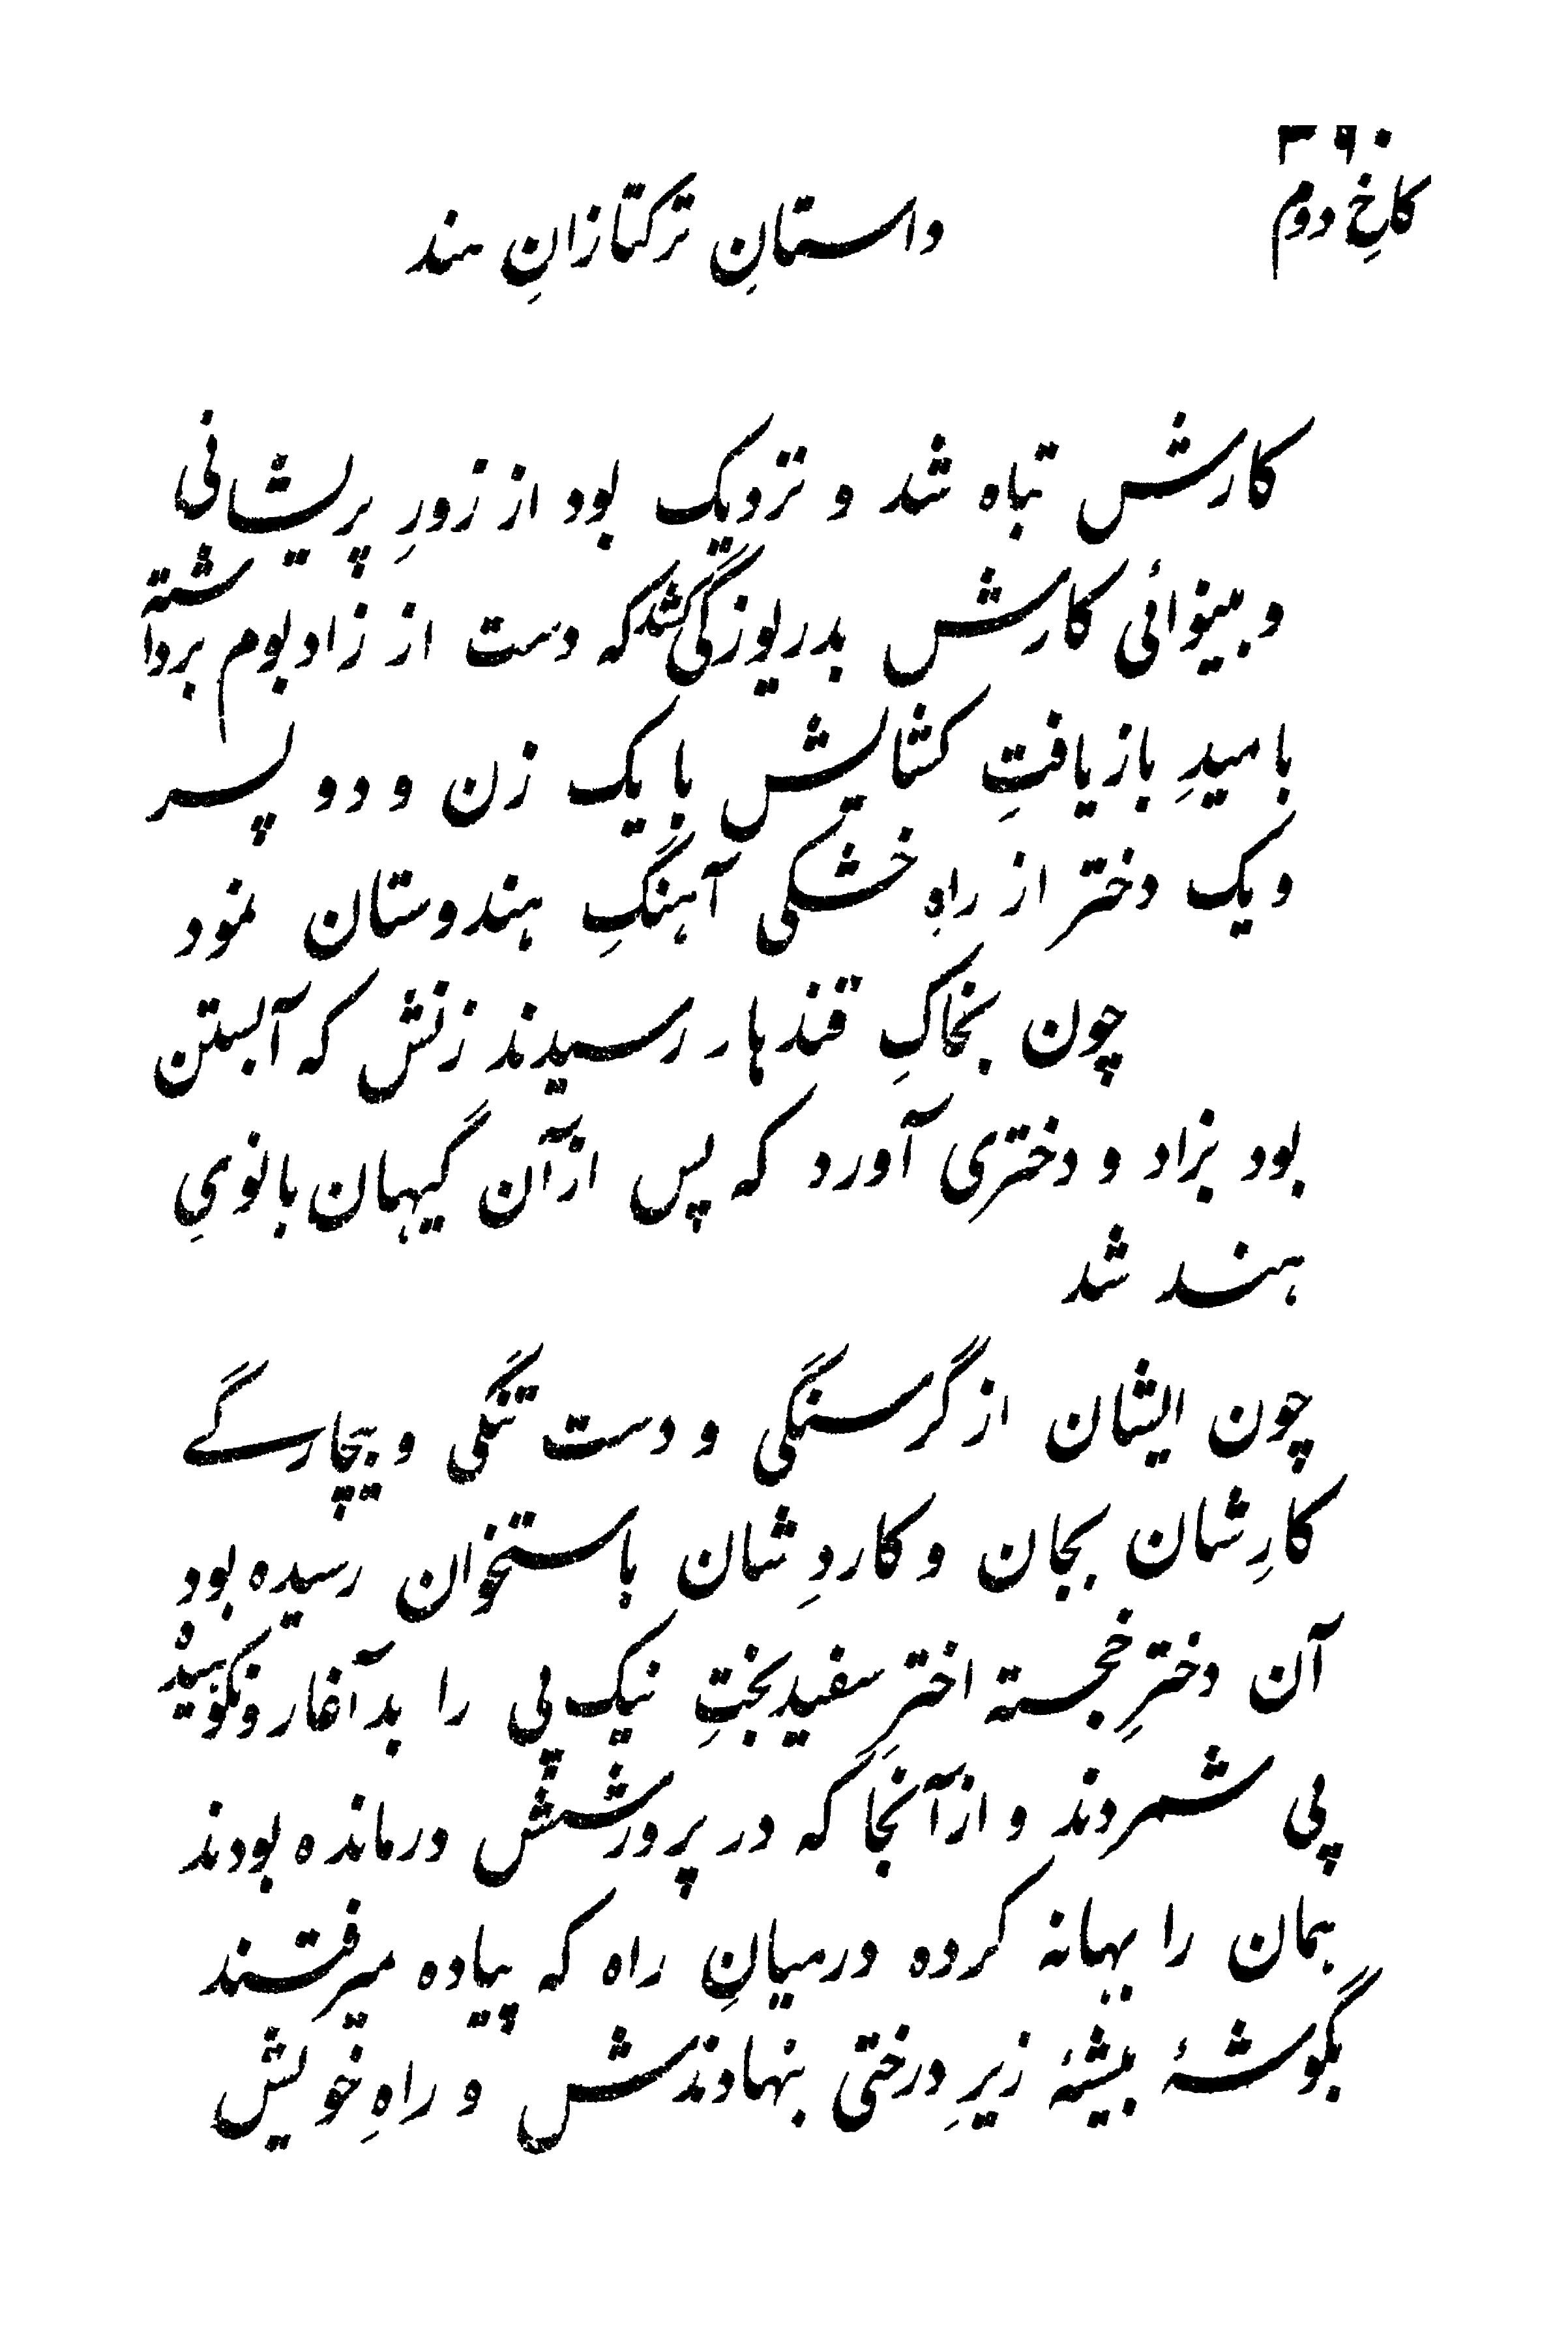 ۳۶۰
کاخِ دوم
داستانِ ترکتازانِ هند
کارش تباه شد و نزدیک بود از زورِ پریشانی
و بینوائی کارش بدریوزگی کشد که دست از زاد بوم برداشته
بامیدِ باز یافتِ کشایش با یک زن و دو پسر
و یک دختر از راهِ خشکی آهنگِ هندوستان نمود
چون بخاکِ قندهار رسیدند زنش که آبستن
بود بزاد و دختری آورد که پس از آن گیهان بانویِ
هند شد
چون ایشان از گرسنگی و دست تنگی و بیچارگے
کارِشان بجان و کاردِ شان باستخوان رسیده بود
آن دخترِ خجسته اخترِ سفید بختِ نیک پی را بد آغار و نکوهیده
پی شمردند و از آنجا که در پرورشش درمانده بودند
همان را بهانه کرده درمیانِ راه که پیاده میرفتند
بگوشهٔ بیشهٔ زیرِ درختی بنهادندش و راهِ خویش